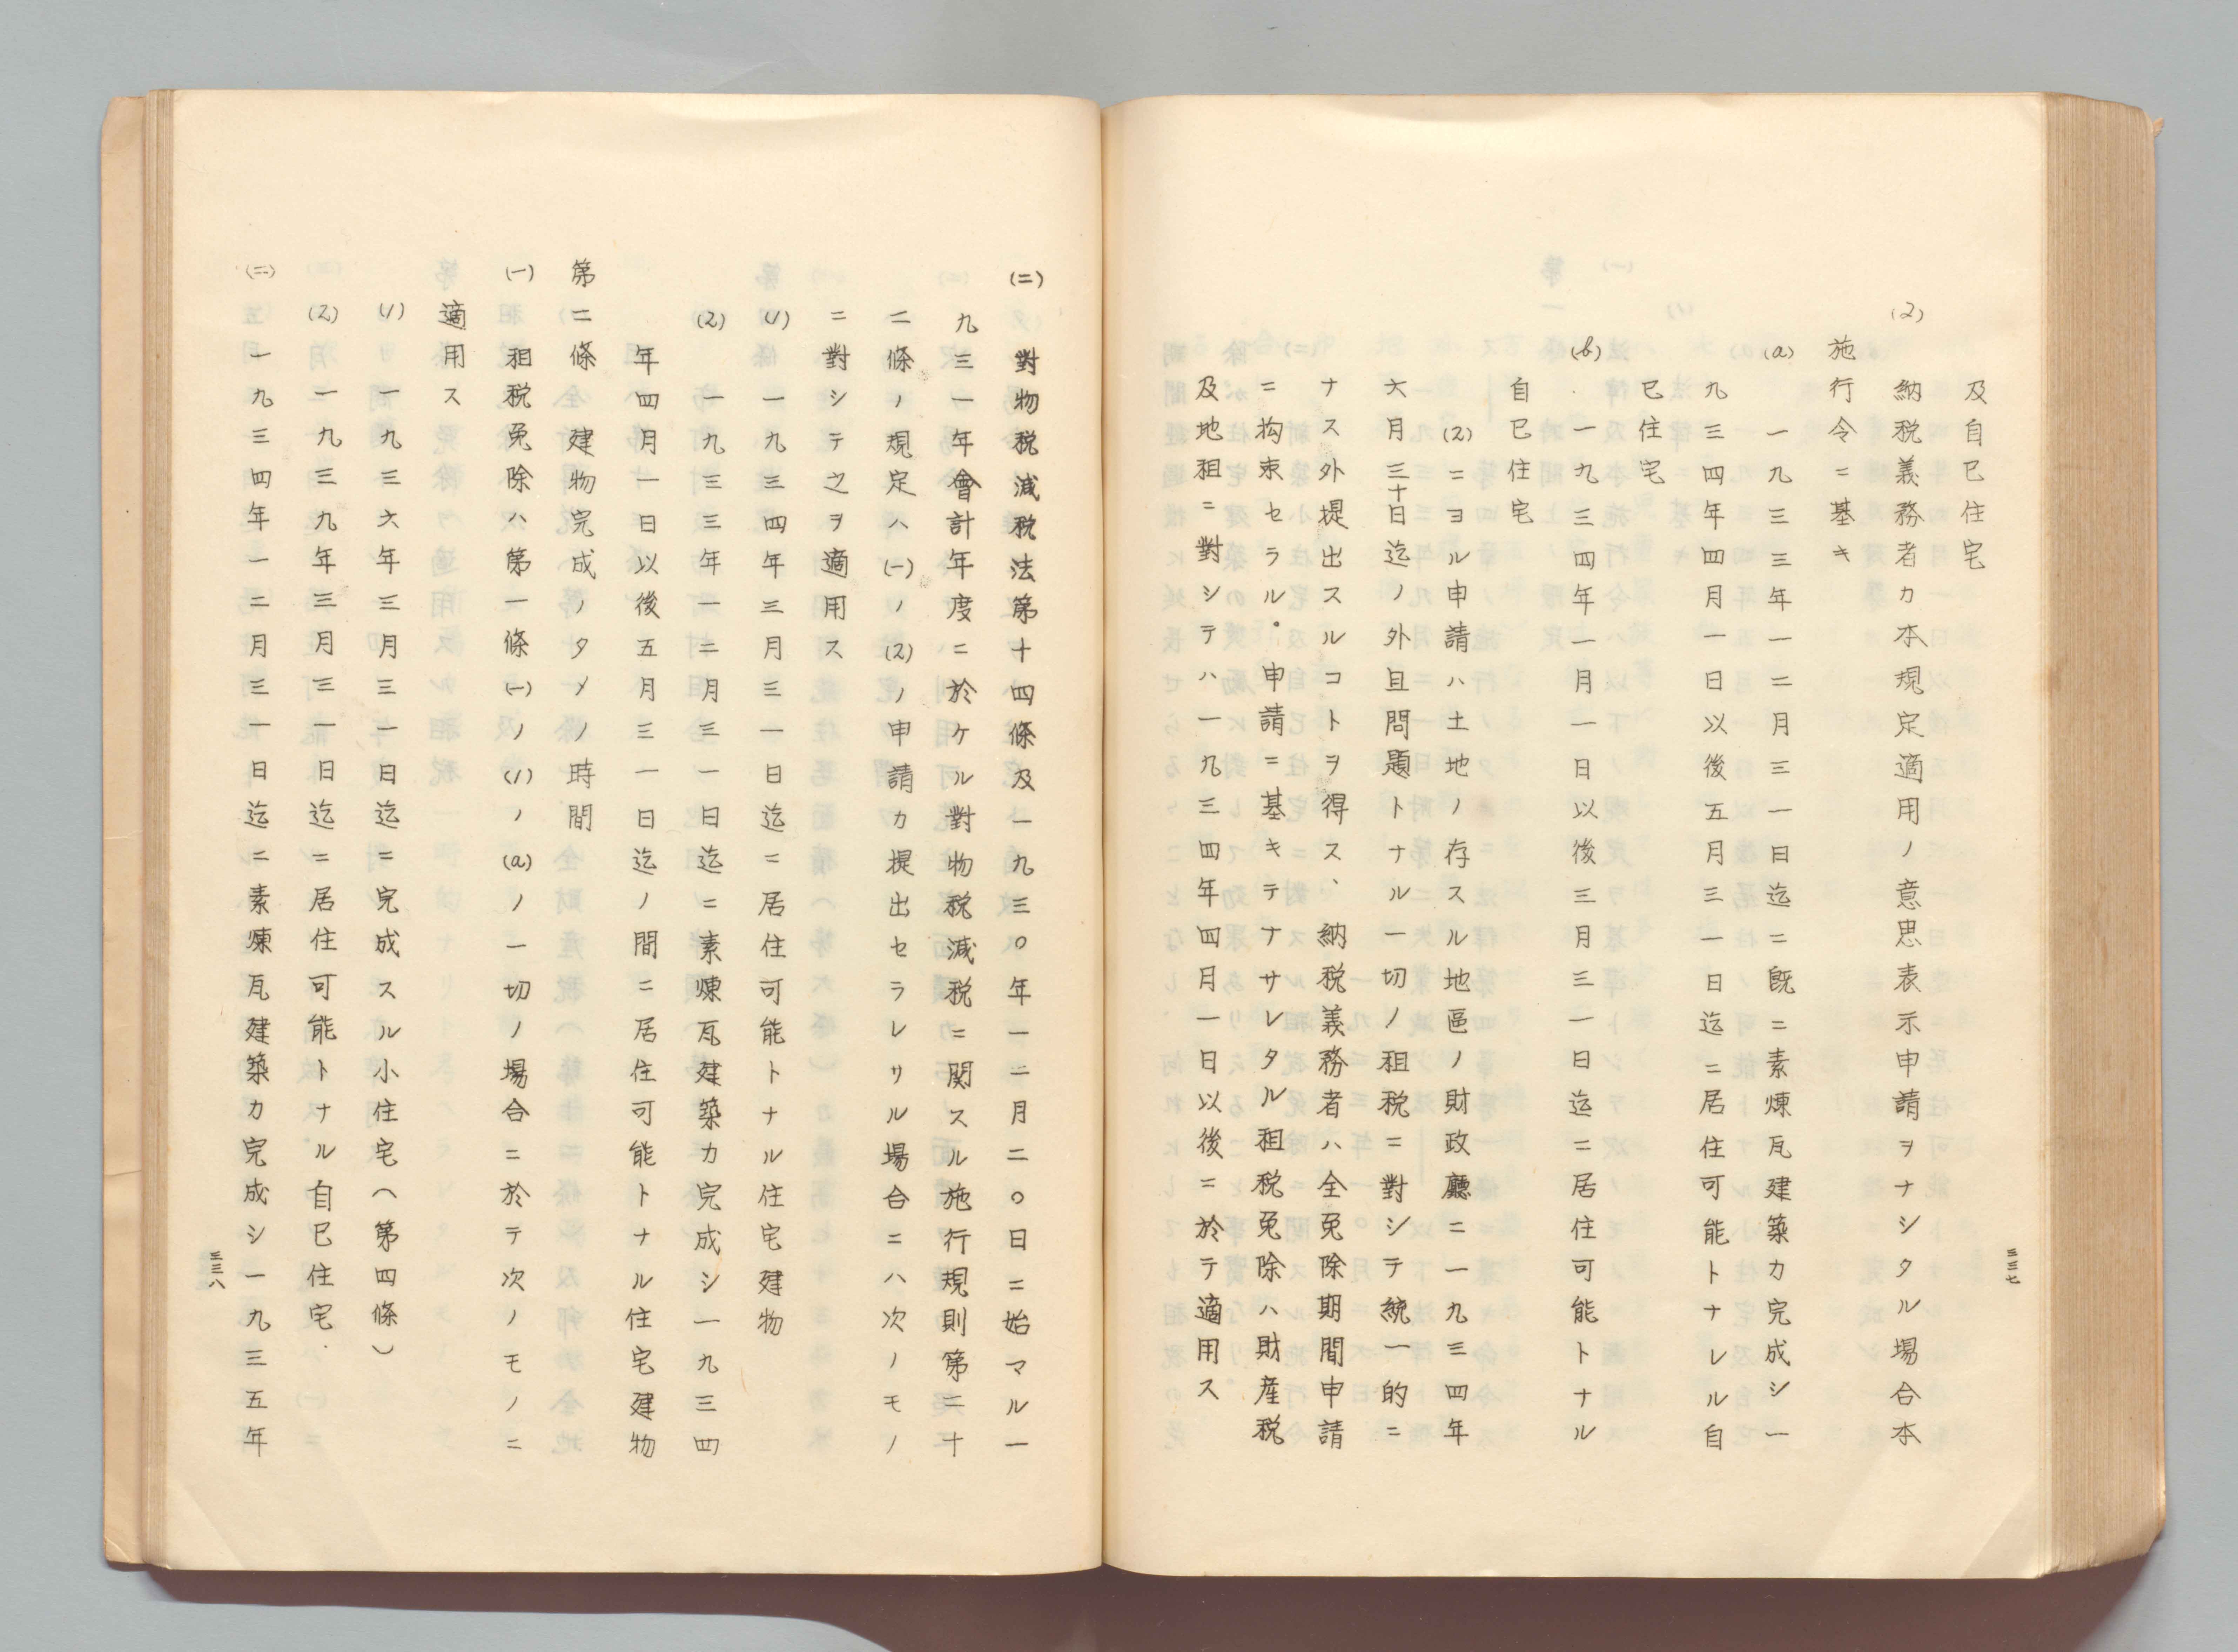 及自已住宅
(2) 納税義務者カ本規定適用ノ意思表示申請ヲナシタル場合本
施行令ニ基キ
(a) 一九三三年一二月三一日迄ニ既ニ素煉瓦建築カ完成シ一
九三四年四月一日以後五月三一日迄ニ居住可能トナレル自
已住宅
(b) 一九三四年一月一日以後三月三一日迄ニ居住可能トナル
自已住宅
(2)ニヨル申請ハ土地ノ存スル地區ノ財政廳ニ一九三四年
六月三十日迄ノ外且問題トナル一切ノ租税ニ對シテ統一的ニ
ナス外提出スルコトヲ得ス、納税義務者ハ全免除期間申請
ニ拘束セラル。申請ニ基キテナサレタル租税免除ハ財産税
及地租ニ對シテハ一九三四年四月一日以後ニ於テ適用ス
三三七
(二) 對物税減税法第十四條及一九三〇年一二月二〇日ニ始マル一
九三一年會計年度ニ於ケル對物税減税ニ関スル施行規則第二十
二條ノ規定ハ(一)ノ(2)ノ申請カ提出セラレサル場合ニハ次ノモノ
ニ對シテ之ヲ適用ス
(1) 一九三四年三月三一日迄ニ居住可能トナル住宅建物
(2) 一九三三年一二月三一日迄ニ素煉瓦建築カ完成シ一九三四
年四月一日以後五月三一日迄ノ間ニ居住可能トナル住宅建物
第二條 建物完成ノタメノ時間
(一) 租税免除ハ第一條(一)ノ(1)ノ(a)ノ一切ノ場合ニ於テ次ノモノニ
適用ス
(1) 一九三六年三月三一日迄ニ完成スル小住宅(第四條)
(2) 一九三九年三月三一日迄ニ居住可能トナル自已住宅.
(二) 一九三四年一二月三一日迄ニ素煉瓦建築カ完成シ一九三五年
三三八